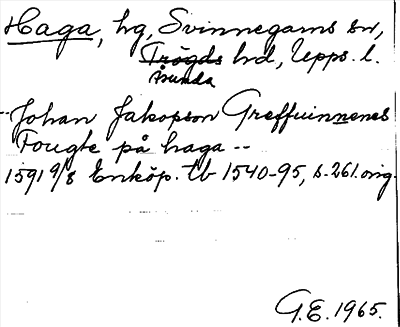 Haga, hg, Svinnegarns sn,
Trögds hd, Upps. l.
Åsunda
-- Johan Jakopson Greffuinnenes
Fougte på haga --
1591 9/8 Enköp. tb 1540-95, s. 261. orig.
G.E. 1965.